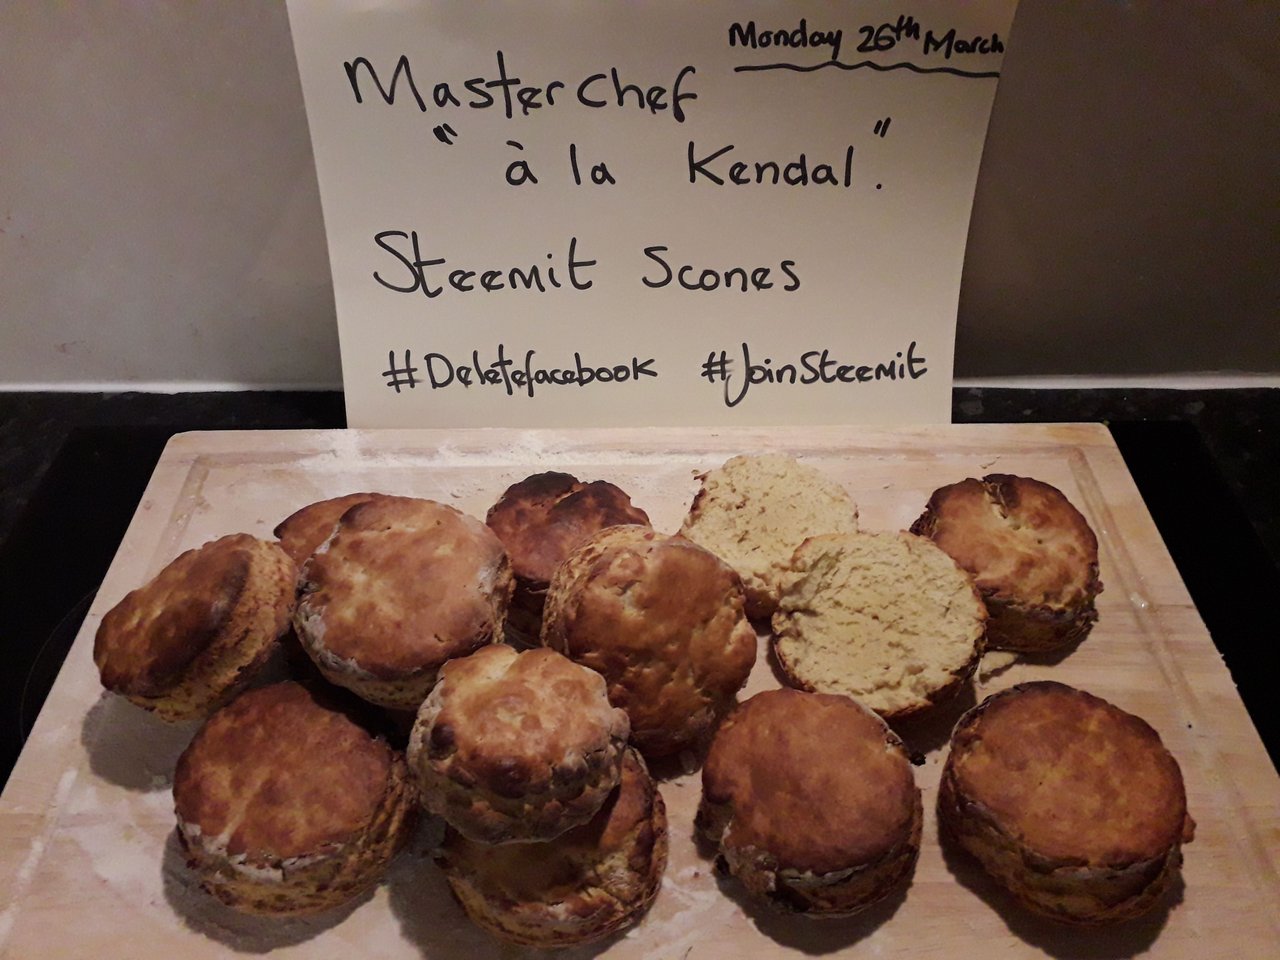 Monday 26th March
Masterchef
" à la Kendal."
Steemit Scones
#Deletefacebook #JoinSteemit